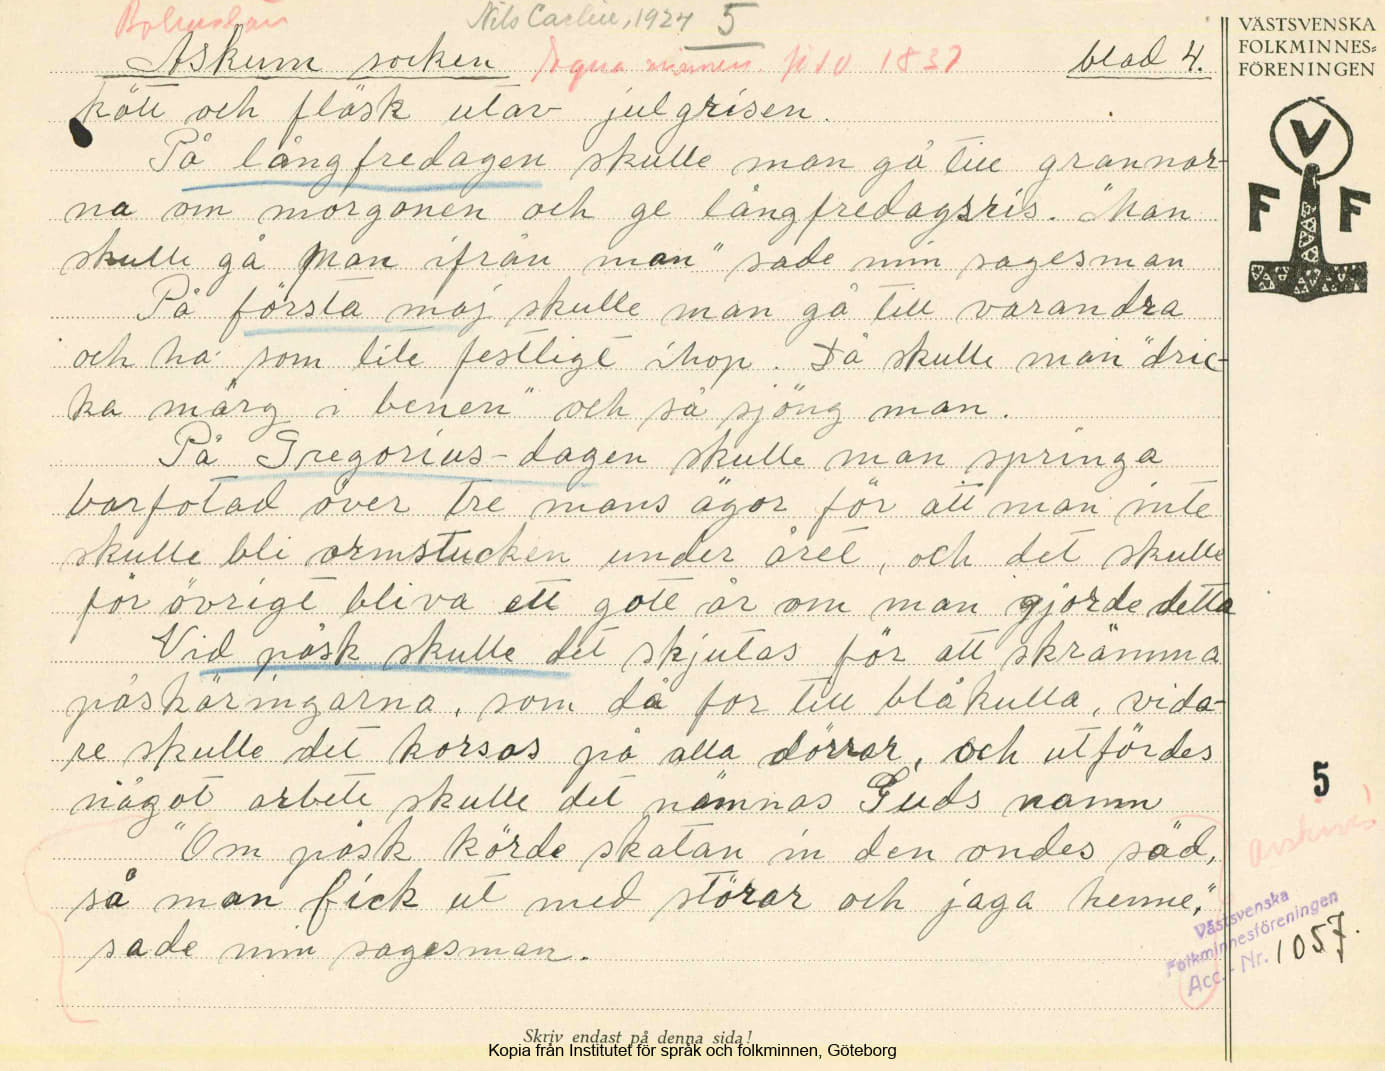 Bohuslän
Nils Carlin, 1924 5
Askum socken född 1837 blad 4.
kött och fläsk utav julgrisen.
På långfredagen skulle man gå till grannar-
na om morgonen och ge långfredagsris. "Man
skulle gå man ifrån man" sade min sagesman
På första maj skulle man gå till varandra
och ha som lite festligt ihop. Då skulle man "dric-
ka märg i benen" och så sjöng man.
På Gregorius-dagen skulle man springa
barfotad över tre mans ägor för att man inte
skulle bli ormstucken under året, och det skulle
för övrigt bliva ett gott år om man gjorde detta
Vid påsk skulle det skjutas för att skrämma
påskäringarna, som då for till blåkulla, vida-
re skulle det korsas på alla dörrar, och utfördes
något arbete skulle det nämnas Guds namn
"Om påsk körde skatan in den ondes säd,
så man fick ut med störar och jaga henne,"
sade min sagesman.
Skriv endast på denna sida!
Kopia från Institutet för språk och folkminnen, Göteborg
VÄSTSVENSKA
FOLKMINNES-
FÖRENINGEN
V
F F
5
Västsvenska
Folkminnesföreningen
Acc. - Nr. 1057.